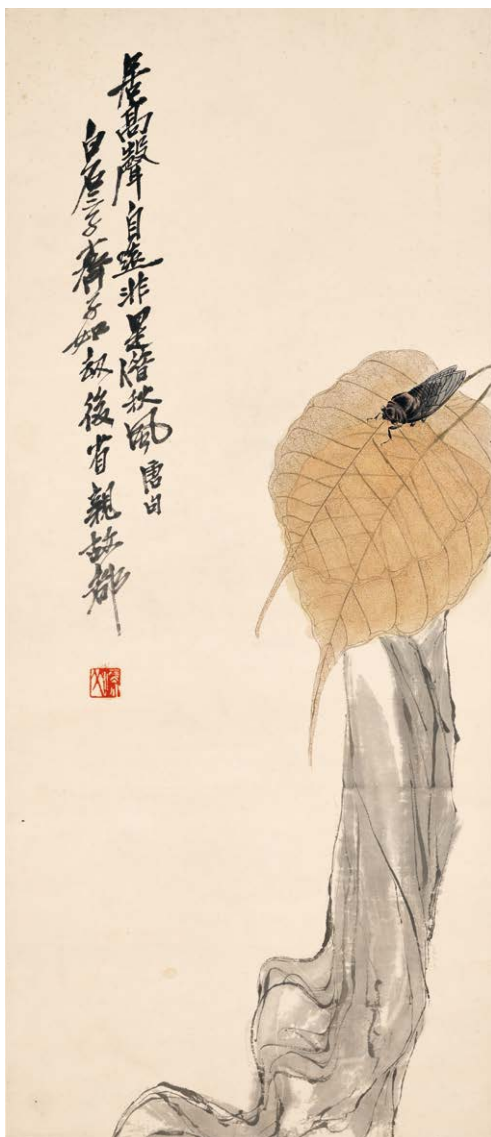 居高聲自遠非是借秋風唐句
白石三子齊子如劫後省親故都